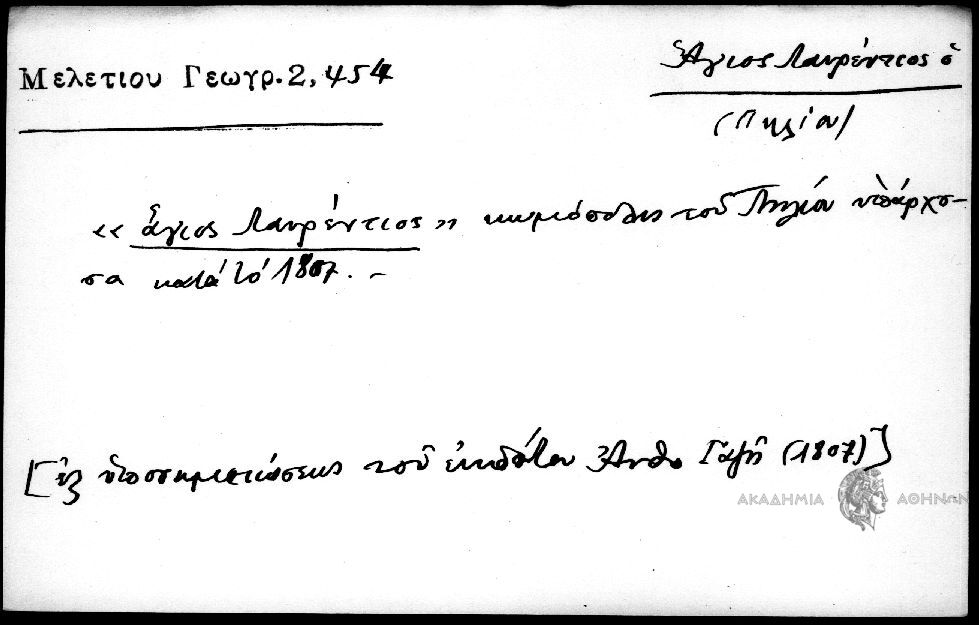 Μελετίου Γεωγρ. 2, 454
Ἅγιος Λαυρέντιος ὁ
(Πηλίου)
«ἅγιος Λαυρέντιος» κωμόπολις τοῦ Πηλίου ὑπάρχου-
σα κατά τό 1807. –
[ἐξ ὑποσημειώσεως τοῦ ἐκδότου Ἀνθ. Γαζῆ (1807)]
ΑΚΑΔΗΜΙΑ ΑΘΗΝΩΝ